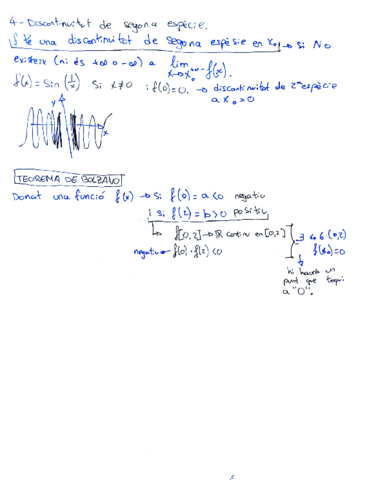 4- Discontinuïtat de segona espècie.
f té una discontinuïtat de segona espèsie en x₀, → si NO
existeix (ni és +∞ o -∞) a lim x→x₀⁺⁰⁻ f(x).
f(x) = Sin(1/x) si x≠0 i f(0)=0. → discontinuïtat de 2ª espècie
a x₀=0
y
x
TEOREMA DE BOLZANO
Donat una funció f(x) → Si f(0)=a<0 negatiu
i si f(2)=b>0 positiu
f[0,2] → ℝ continu en [0,2] } ⇒ ∃ x₀ ∈ (0,2)
negatiu ← f(0)·f(2)<0 f(x₀)=0
hi haurà un
punt que toqui
a "0".